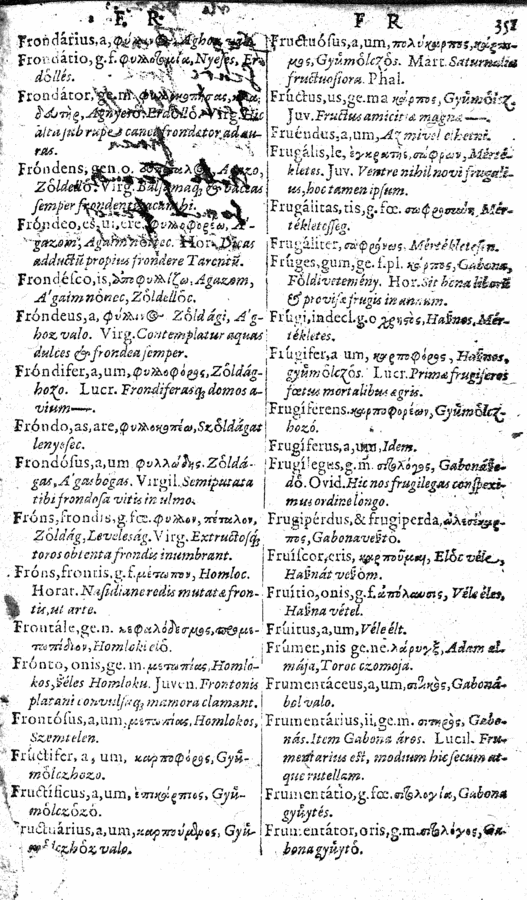 F R
F R 351
Frondárius,a,
Frondátio,g.f. φυλλοτομία, Nyeſes, Er
dőllés.
Frondátor, ge.m.
Virg. Hic
alta ſub rupe canet frondator ad au-
ras.
Fróndens, gen.o.
Zőldellő. Virg. Balſamaq; & baccas
ſemper frondentis acanthi.
Fróndeo,es,ui,ere,
gazom, A'gaim nőnec. Hor. Dicas
adductũ propius frondere Tarentũ.
Frondéſco,is, Agazom,
A'gaim nőnec, Zőldellőc.
Fróndeus,a, Zőld ági, A'g-
hoz valo. Virg. Contemplatur aquas
dulces & frondea ſemper.
Fróndifer,a,um, φυλλοφόρος, Zőldág-
hozo. Lucr. Frondiferasq; domos a-
vium—.
Fróndo,as,are, φυλλοκοπέω, Szőldágat
lenyeſec.
Frondóſus,a,um φυλλώδης. Zőldá-
gas, A'gas bogas. Virgil. Semiputata
tibi frondoſa vitis in ulmo.
Fróns, frondis, g.fœ. φύλλον, πέταλον,
Zőldág, Leveleság. Virg. Extructoſq;
toros obtenta frondis inumbrant.
Fróns, frontis, g.f. μέτωπον, Homloc.
Horat. Naſidiane redis mutatæ fron-
tis, ut arte.
Frontále, ge.n. κεφαλόδεσμος,
Homloki
Frónto, onis, ge.m. μετωπίας, Homlo-
kos, Homloku. Juven. Frontonis
platani convulſaq; marmora clamant.
Frontóſus,a,um, μετωπίας, Homlokos,
Szemtelen.
Frúctifer, a, um, καρποφόρος, Gyű-
mőlczhozo.
Fructíficus,a,um, ἐπικάρπιος, Gyű-
mőlczhőző.
Fructuárius,a,um, Gyű-
mőlczhőz valo.
Fructuóſus,a,um, πολύκαρπος,
Gyűmőlczős. Mart. Saturnalia
fructuoſiora. Phal.
Frúctus,us,ge.ma κάρπος, Gyűmőlcz.
Juv. Fructus amicitiæ magnæ —.
Fruéndus,a,um, Az mivel elhetni.
Frugális,le, ἐγκρατὴς, σώφρων, Mérté-
kletes. Juv. Ventre nihil novi frugali-
us, hoc tamen ipſum.
Frugálitas,tis,g.fœ. Mér-
tékleteſség.
Frugáliter, σωφρόνως. Mértékleteſen.
Frúges,gum,ge.f.pl. κάρπος, Gabona,
Főldi vetemény. Hor. Sit bona
& proviſæ frugis in annum.
Frúgi,indecl.g.o Haſznos, Mér-
tékletes.
Frúgifer,a um, καρποφόρος, Haſznos,
gyűmőlczős. Lucr. Primæ frugiferos
fœtus mortalibus ægris.
Frugíferens. καρποφορέων, Gyűmőlcz-
hozó.
Frugíferus,a,um, Idem.
Frugíleges,g.m. σιτολόγος, Gabonáſze-
dő. Ovid. Hic nos frugilegas conſpexi-
mus ordine longo.
Frugipérdus,& frugiperda,
Gabonaveſztő.
Fruíſcor,eris, Előc véle,
Haſznát veſzőm.
Fruítio,onis,g.f. ἀπόλαυσις, Véle éles,
Haſzna vétel.
Frúitus,a,um, Véle élt.
Frúmen,nis ge.ne. λάρυγξ, Adam al-
mája, Toroc czomoja.
Frumentáceus,a,um, Gaboná-
bol valo.
Frumentárius,ii,ge.m. Gabo-
nás. Item Gabona áros. Lucil. Fru-
mentarius eſt, modium hic ſecum at-
que rutellam.
Frumentátio,g.fœ. σιτολογία, Gabona
gyűytés.
Frumentátor,oris,g.m. σιτολόγος, Ga-
bona gyűytő.